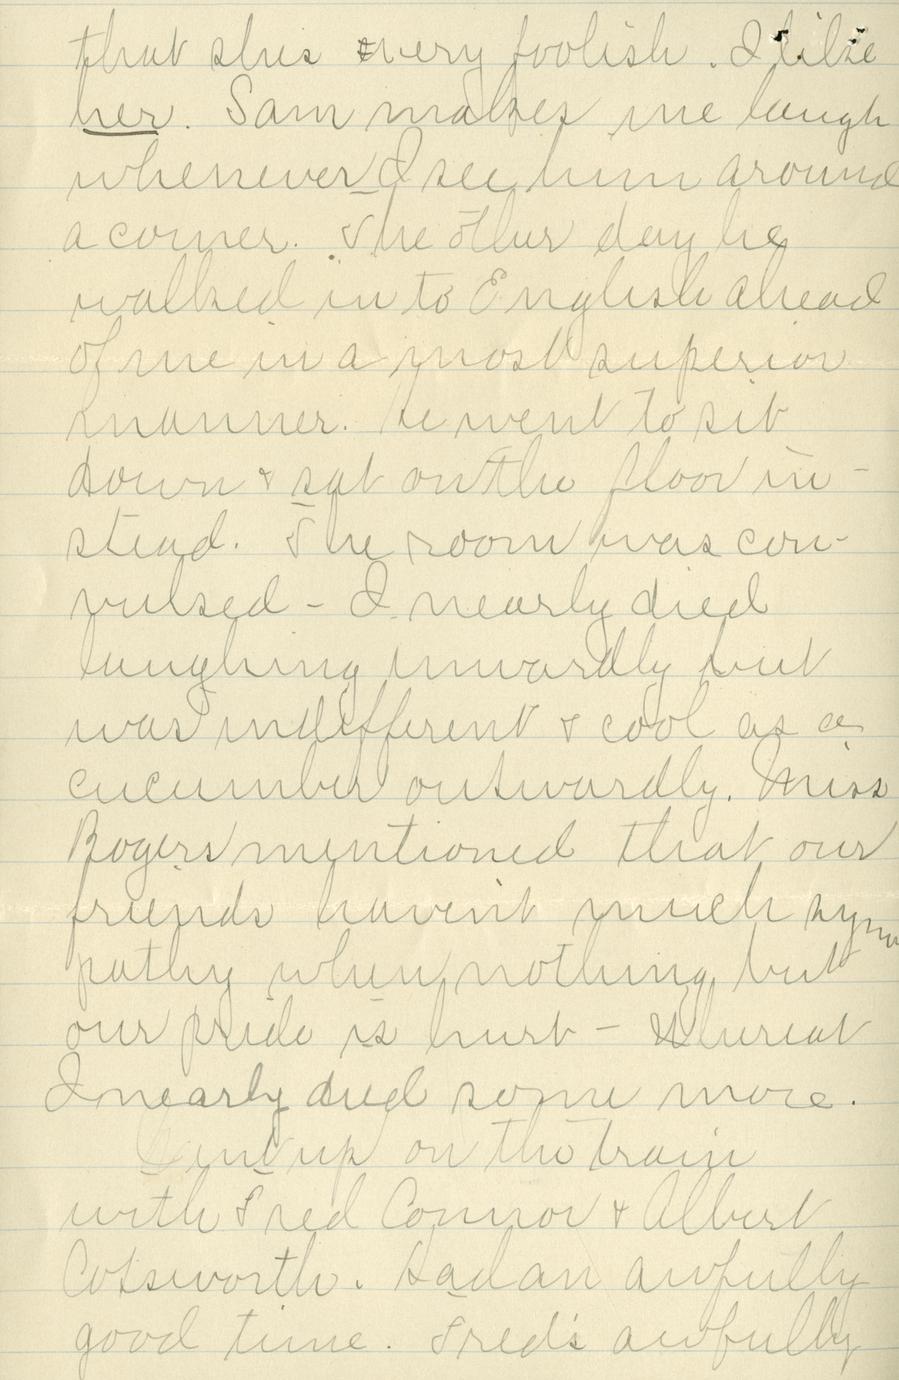 that shes very foolish. I like
her. Sam makes me laugh
whenever I see him around
a corner. The other day he
walked in to English ahead
of me in a most superior
manner. He went to sit
down & sat on the floor in-
stead. The room was con-
vulsed - I nearly died
laughing inwardly but
was indifferent & cool as a
cucumber outwardly. Miss
Rogers mentioned that our
friends havent much sym
pathy when nothing but
our pride is hurt - Whereat
I nearly died some more.
up on the train
with Fred Connor & Albert
Cotsworth. Had an awfully
good time. Fred's awfully